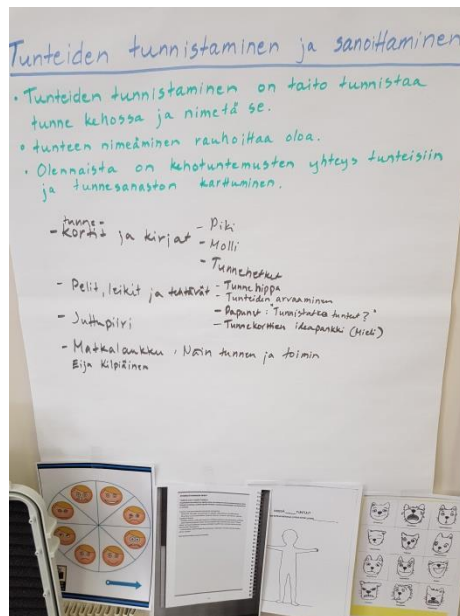 Tunteiden tunnistaminen ja sanoittaminen
• Tunteiden tunnistaminen on taito tunnistaa
tunne kehossa ja nimetä se.
• tunteen nimeäminen rauhoittaa oloa.
• Olennaista on kehotuntemusten yhteys tunteisiin
ja tunnesanaston karttuminen.
tunne-
- kortit ja kirjat - Piki
- Molli
- Tunnehetket
- Pelit, leikit ja tehtävät - Tunnehippa
- Tunteiden arvaaminen
- Papunet: "Tunnistatko tunteet?"
- Tunnekorttien ideapankki (Mieli)
- Juttupiiri
- Matkalaukku, Näin tunnen ja toimin
Eija Kilpiäinen